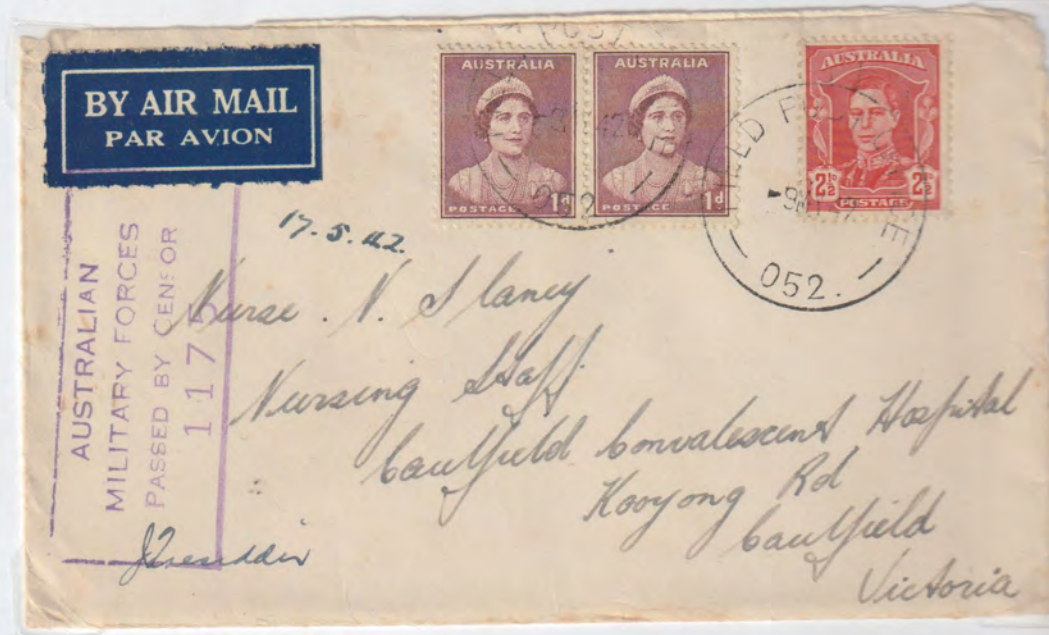 BY AIR MAIL
PAR AVION
AUSTRALIA
POSTAGE 1d
AUSTRALIA
POSTAGE 1d
AUSTRALIA
2½D 2½D
POSTAGE
POST
052
FIELD
052.
17.5.42.
AUSTRALIAN
MILITARY FORCES
PASSED BY CENSOR
117
Nurse. N. Slaney
Nursing Staff
Caulfield Convalescent Hospital
Kooyong Rd
Caulfield
Victoria